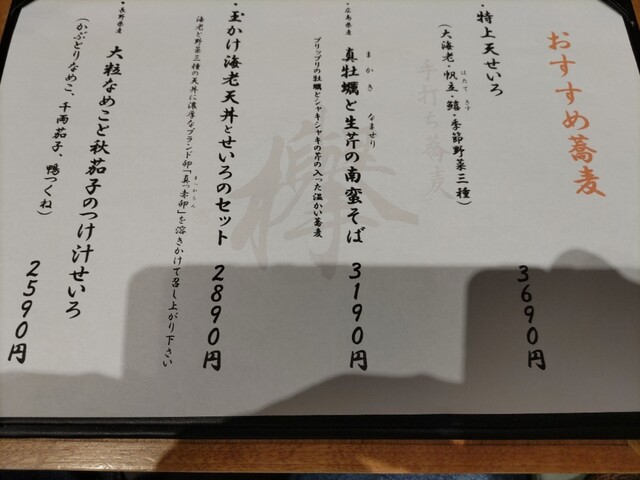 おすすめ蕎麦
・特上天せいろ
(大海老・帆立・鱚・季節野菜三種)
ほたて きす
3690円
手打ち蕎麦
欅
・広島県産
真牡蠣と生芹の南蛮そば
まかき なませり
プリップリの牡蠣とシャキシャキの芹の入った温かい蕎麦
3190円
・玉かけ海老天丼とせいろのセット
海老と野菜三種の天丼に濃厚なブランド卵「真っ赤卵」を溶きかけて召し上がり下さい
まっからん
2890円
・長野県産
大粒なめこと秋茄子のつけ汁せいろ
(かぶとりなめこ、千両茄子、鴨つくね)
2590円